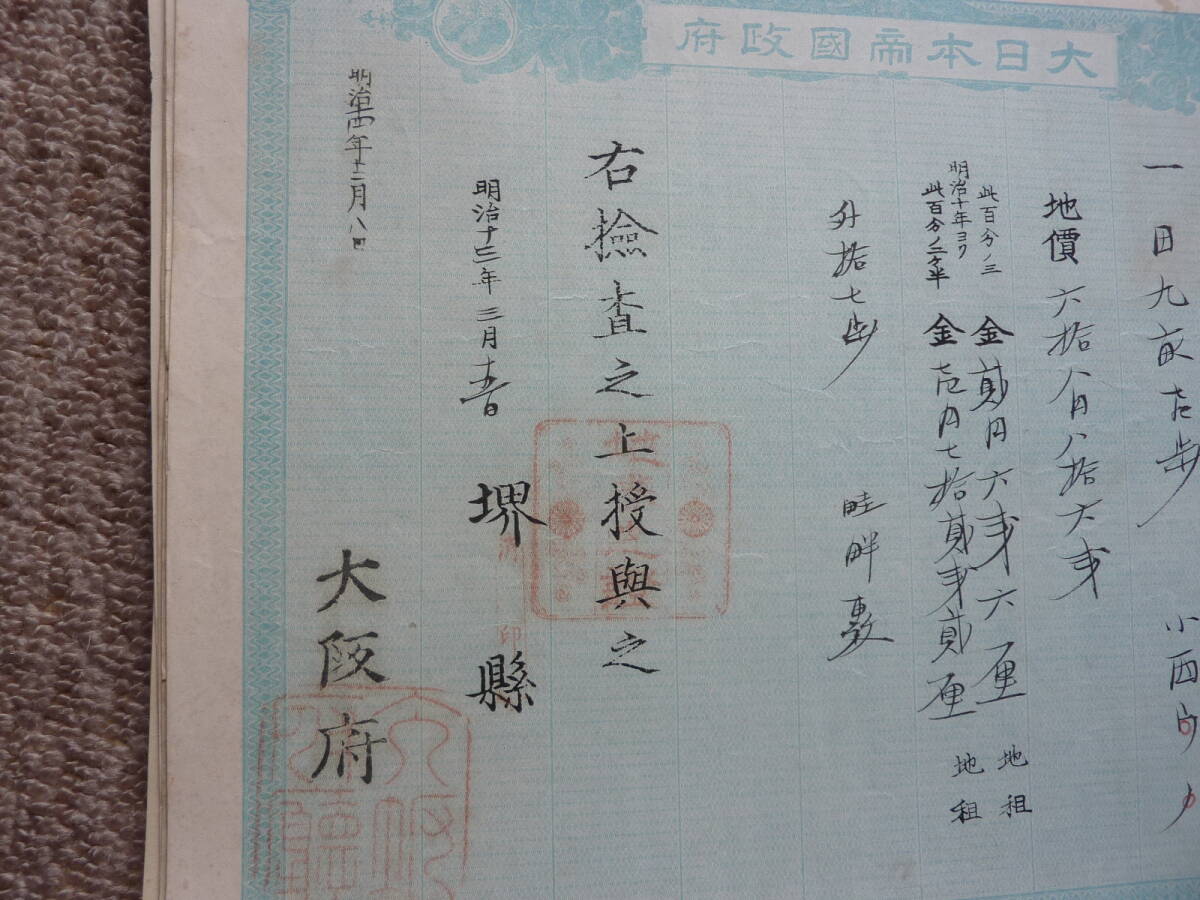 大日本帝國政府
一田九畝壱歩
地價六拾八円八拾六銭
此百分ノ三 金貳円六銭六厘 地租
明治十年ヨリ
此百分ノ二ケ半 金壱円七拾貳銭貳厘 地租
外拾七歩 畦畔敷
右撿査之上授與之
明治十三年三月十五日 堺縣
印
明治十四年十二月八日 大阪府